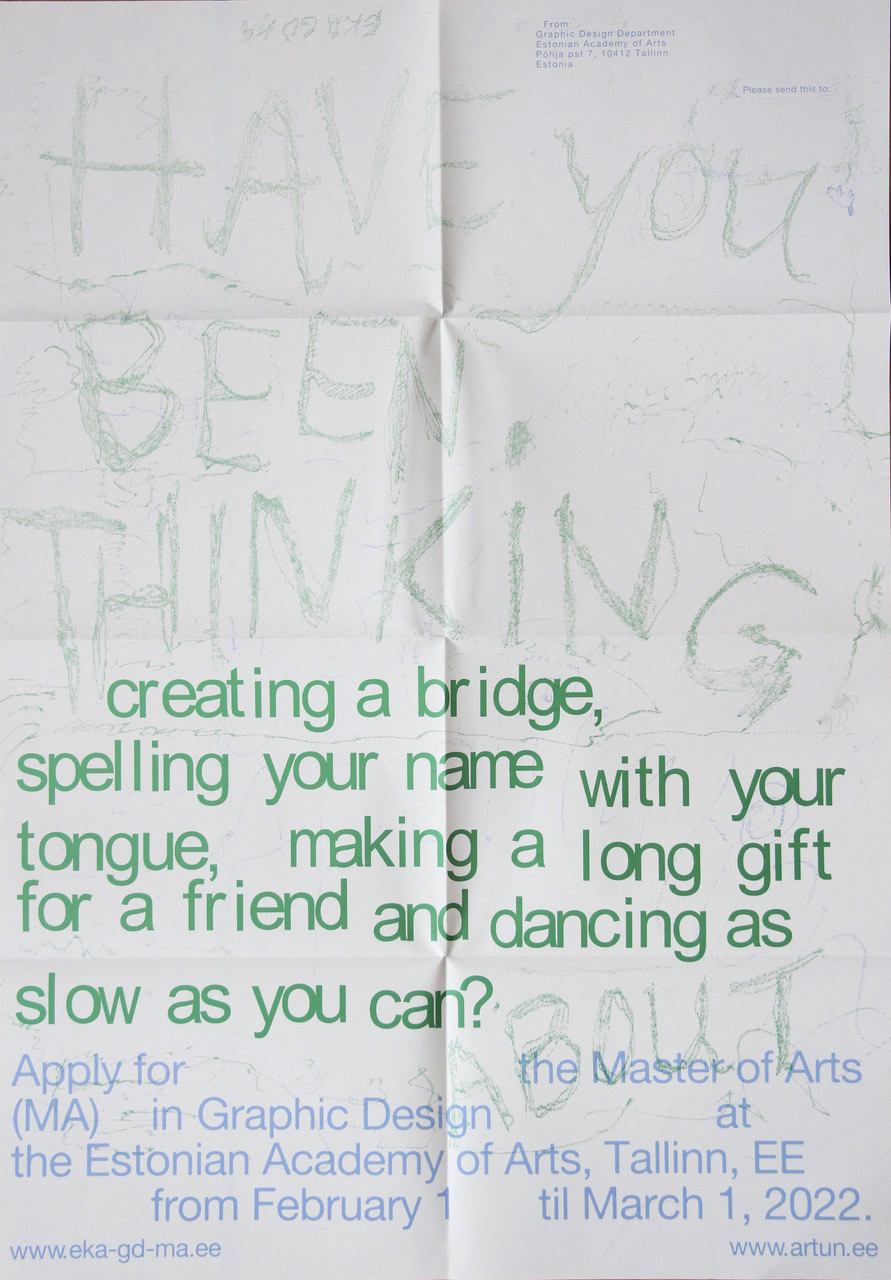 EKA GD MA
From:
Graphic Design Department
Estonian Academy of Arts
Põhja pst 7, 10412 Tallinn
Estonia
Please send this to:
HAVE you
BEEN
THINKING
creating a bridge,
spelling your name with your
tongue, making a long gift
for a friend and dancing as
slow as you can?
ABOUT
Apply for the Master of Arts
(MA) in Graphic Design at
the Estonian Academy of Arts, Tallinn, EE
from February 1 til March 1, 2022.
www.eka-gd-ma.ee www.artun.ee